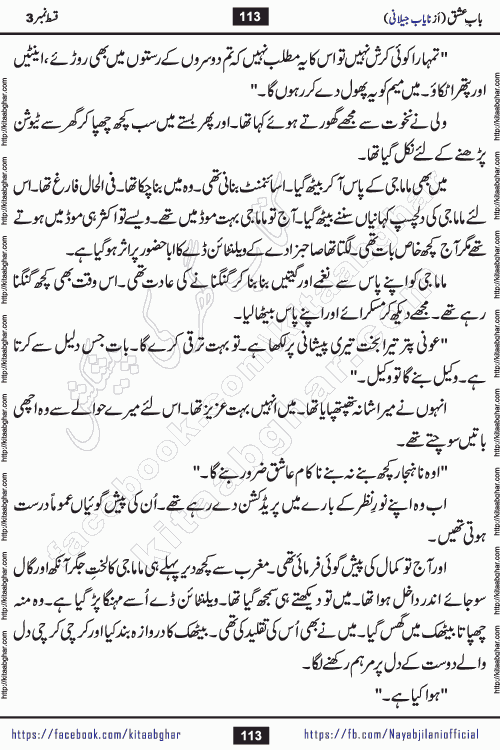 باب عشق (از نایاب جیلانی)
113
قسط نمبر 3
"تمہارا کوئی کرش نہیں تو اس کا یہ مطلب نہیں کہ تم دوسروں کے رستوں میں بھی روڑے، اینٹیں
اور پتھر اٹکاؤ۔ میں میم کو یہ پھول دے کر رہوں گا۔"
ولی نے نخوت سے مجھے گھورتے ہوئے کہا تھا۔ اور پھر بستے میں سب کچھ چھپا کر گھر سے ٹیوشن
پڑھنے کے لئے نکل گیا تھا۔
میں بھی ماما جی کے پاس آ کر بیٹھ گیا۔ اسائنمنٹ بنانی تھی۔ وہ میں بنا چکا تھا۔ فی الحال فارغ تھا۔ اس
لئے ماما جی کی دلچسپ کہانیاں سننے بیٹھ گیا۔ آج تو ماما جی بہت موڈ میں تھے۔ ویسے تو اکثر ہی موڈ میں ہوتے
تھے مگر آج کچھ خاص بات تھی۔ لگتا تھا صاحبزادے کے ویلنٹائن ڈے کا ابا حضور پر اثر ہو گیا ہے۔
ماما جی کو اپنے پاس سے نغمے اور گیتیں بنا بنا کر گنگنانے کی عادت تھی۔ اس وقت بھی کچھ گنگنا
رہے تھے۔ مجھے دیکھ کر مسکرائے اور اپنے پاس بیٹھا لیا۔
"عونی پتر تیرا بخت تیری پیشانی پر لکھا ہے۔ تو بہت ترقی کرے گا۔ بات جس دلیل سے کرتا
ہے۔ وکیل بنے گا تو وکیل۔"
انہوں نے میرا شانہ تھپتھپایا تھا۔ میں انہیں بہت عزیز تھا۔ اس لئے میرے حوالے سے وہ اچھی
باتیں سوچتے تھے۔
"اوہ ناہنجار کچھ بنے نہ بنے ناکام عاشق ضرور بنے گا۔"
اب وہ اپنے نورِ نظر کے بارے میں پریڈکشن دے رہے تھے۔ اُن کی پیش گوئیاں عموماً درست
ہوتی تھیں۔
اور آج تو کمال کی پیش گوئی فرمائی تھی۔ مغرب سے کچھ دیر پہلے ہی ماما جی کا لختِ جگر آنکھ اور گال
سوجائے اندر داخل ہوا تھا۔ میں تو دیکھتے ہی سمجھ گیا تھا۔ ویلنٹائن ڈے اُسے مہنگا پڑ گیا ہے۔ وہ منہ
چھپاتا بیٹھک میں گھس گیا۔ میں نے بھی اُس کی تقلید کی تھی۔ بیٹھک کا دروازہ بند کیا اور کرچی کرچی دل
والے دوست کے دل پر مرہم رکھنے لگا۔
"ہوا کیا ہے۔"
https://facebook.com/kitaabghar
113
https://fb.com/Nayabjilaniofficial
http://kitaabghar.com
facebook.com/kitaabghar
kitaabghar.com
کتاب گھر کی پیشکش